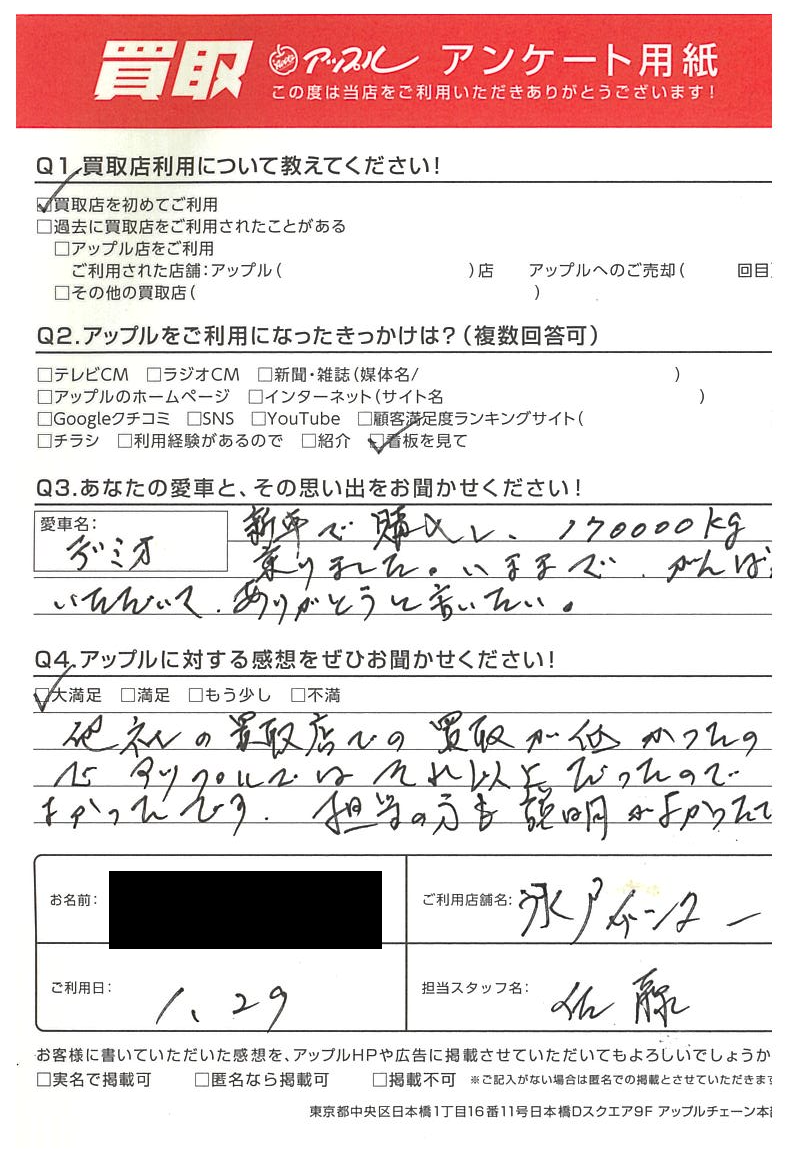 買取 アップル アンケート用紙
この度は当店をご利用いただきありがとうございます!
Q1.買取店利用について教えてください!
☑買取店を初めてご利用
□過去に買取店をご利用されたことがある
□アップル店をご利用
ご利用された店舗:アップル( )店 アップルへのご売却( 回目)
□その他の買取店( )
Q2.アップルをご利用になったきっかけは?(複数回答可)
□テレビCM □ラジオCM □新聞・雑誌(媒体名/ )
□アップルのホームページ □インターネット(サイト名 )
□Googleクチコミ □SNS □YouTube □顧客満足度ランキングサイト(
□チラシ □利用経験があるので □紹介 ☑看板を見て
Q3.あなたの愛車と、その思い出をお聞かせください!
愛車名:
デミオ
新車で購入し、170000kg
乗りました。いままで、がんば
いただいて、ありがとうと言いたい。
Q4.アップルに対する感想をぜひお聞かせください!
☑大満足 □満足 □もう少し □不満
他社の買取店での買取が低かったの
で アップルではそれ以上だったので
よかったです. 担当の方も説明がよかった
お名前:
ご利用店舗名: 水戸インター
ご利用日: 1、29
担当スタッフ名: 佐藤
お客様に書いていただいた感想を、アップルHPや広告に掲載させていただいてもよろしいでしょうか
□実名で掲載可 □匿名なら掲載可 □掲載不可 ※ご記入がない場合は匿名での掲載とさせていただきます
東京都中央区日本橋1丁目16番11号日本橋Dスクエア9F アップルチェーン本部